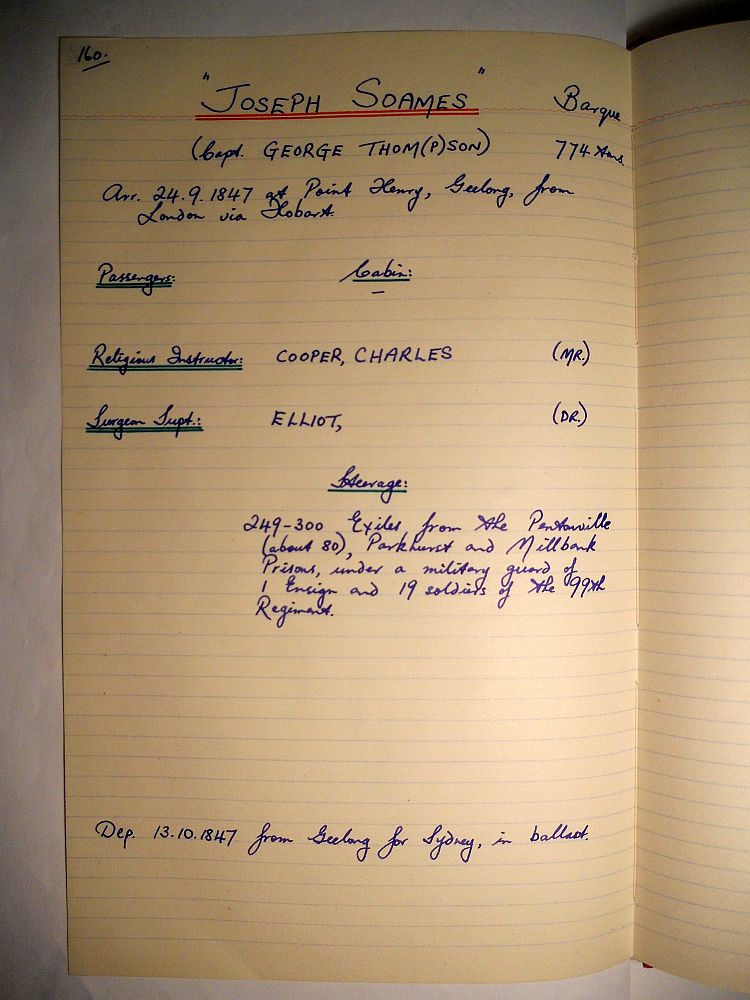 160.
"JOSEPH SOAMES" Barque
(Capt. GEORGE THOM(P)SON) 774 tns
Arr. 24.9.1847 at Point Henry, Geelong, from
London via Hobart.
Passengers: Cabin:
–
Religious Instructor: COOPER, CHARLES (MR.)
Surgeon Supt.: ELLIOT, (DR.)
Steerage:
249-300 Exiles from the Pentonville
(about 80), Parkhurst and Millbank
Prisons, under a military guard of
1 Ensign and 19 soldiers of the 99th
Regiment.
Dep. 13.10.1847 from Geelong for Sydney, in ballast.